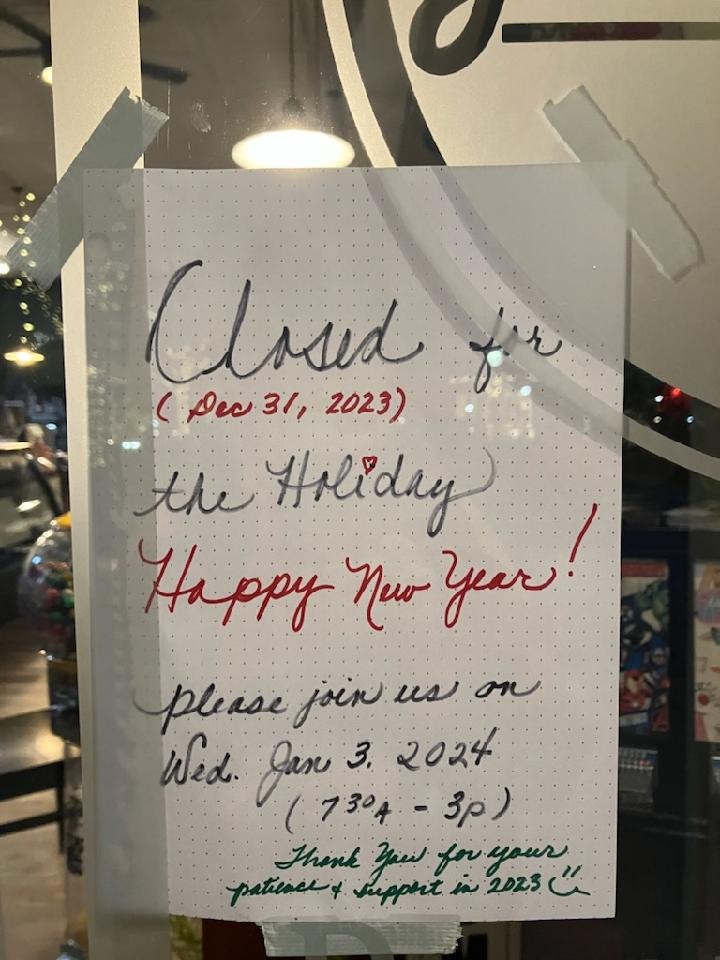 Closed for
(Dec 31, 2023)
the Holiday
Happy New Year!
please join us on
Wed. Jan 3. 2024
(7 30A - 3p)
Thank You for your
patience & support in 2023